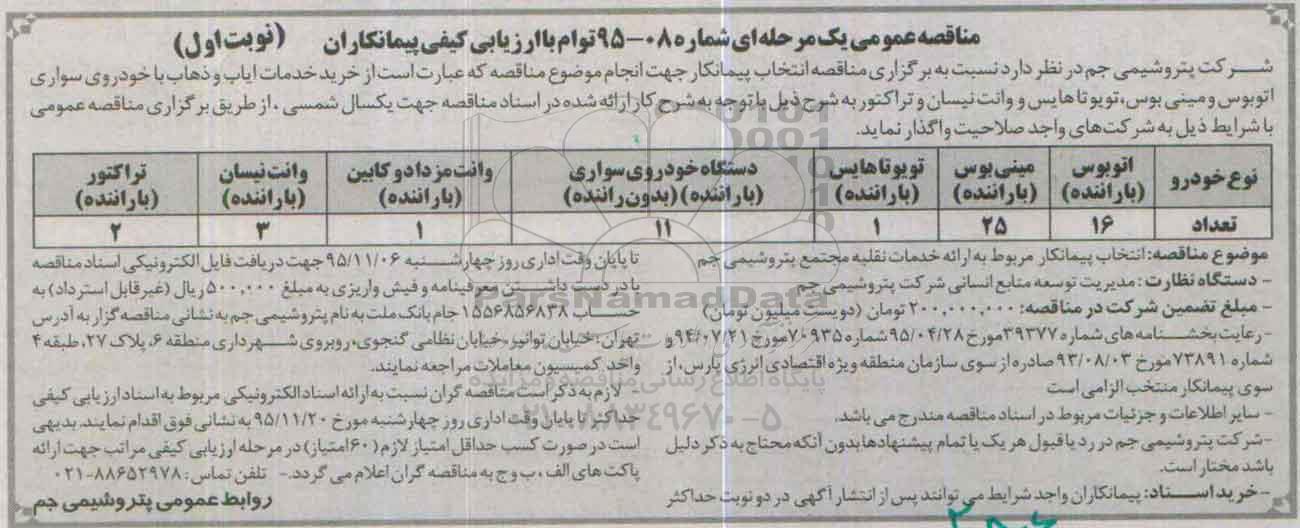 مناقصه عمومی یک مرحله‌ای شماره ۰۸-۹۵ توام با ارزیابی کیفی پیمانکاران (نوبت اول)
شرکت پتروشیمی جم در نظر دارد نسبت به برگزاری مناقصه انتخاب پیمانکار جهت انجام موضوع مناقصه که عبارت است از خرید خدمات ایاب و ذهاب با خودروی سواری
اتوبوس و مینی بوس، تویوتا هایس و وانت نیسان و تراکتور به شرح ذیل با توجه به شرح کار ارائه شده در اسناد مناقصه جهت یکسال شمسی، از طریق برگزاری مناقصه عمومی
با شرایط ذیل به شرکت‌های واجد صلاحیت واگذار نماید.
نوع خودرو اتوبوس (با راننده) مینی بوس (با راننده) تویوتا هایس (با راننده) دستگاه خودروی سواری (با راننده) (بدون راننده) وانت مزدا دو کابین (با راننده) وانت نیسان (با راننده) تراکتور (با راننده)
تعداد ۱۶ ۲۵ ۱ ۱۱ ۱ ۳ ۲
موضوع مناقصه: انتخاب پیمانکار مربوط به ارائه خدمات نقلیه مجتمع پتروشیمی جم
- دستگاه نظارت: مدیریت توسعه منابع انسانی شرکت پتروشیمی جم
- مبلغ تضمین شرکت در مناقصه: ۲۰۰,۰۰۰,۰۰۰ تومان (دویست میلیون تومان)
- رعایت بخشنامه‌های شماره ۳۹۳۷۷ مورخ ۹۵/۰۴/۲۸ شماره ۷۰۹۳۵ مورخ ۹۴/۰۷/۲۱ و
شماره ۷۳۸۹۱ مورخ ۹۳/۰۸/۰۳ صادره از سوی سازمان منطقه ویژه اقتصادی انرژی پارس، از
سوی پیمانکار منتخب الزامی است
- سایر اطلاعات و جزئیات مربوط در اسناد مناقصه مندرج می باشد.
- شرکت پتروشیمی جم در رد یا قبول هر یک یا تمام پیشنهادها بدون آنکه محتاج به ذکر دلیل
باشد مختار است.
- خرید اسناد: پیمانکاران واجد شرایط می توانند پس از انتشار آگهی در دو نوبت حداکثر
تا پایان وقت اداری روز چهارشنبه ۹۵/۱۱/۰۶ جهت دریافت فایل الکترونیکی اسناد مناقصه
با در دست داشتن معرفینامه و فیش واریزی به مبلغ ۵۰۰,۰۰۰ ریال (غیر قابل استرداد) به
حساب ۱۵۵۶۸۵۶۸۳۸ جام بانک ملت به نام پتروشیمی جم به نشانی مناقصه گزار به آدرس
تهران: خیابان توانیر، خیابان نظامی گنجوی، روبروی شهرداری منطقه ۶، پلاک ۲۷، طبقه ۴
واحد کمیسیون معاملات مراجعه نمایند.
- لازم به ذکر است مناقصه گران نسبت به ارائه اسناد الکترونیکی مربوط به اسناد ارزیابی کیفی
حداکثر تا پایان وقت اداری روز چهارشنبه مورخ ۹۵/۱۱/۲۰ به نشانی فوق اقدام نمایند. بدیهی
است در صورت کسب حداقل امتیاز لازم (۶۰ امتیاز) در مرحله ارزیابی کیفی مراتب جهت ارائه
پاکت های الف، ب و ج به مناقصه گران اعلام می گردد. - تلفن تماس: ۸۸۶۵۲۹۷۸-۰۲۱
روابط عمومی پتروشیمی جم
ParsNamadData
پایگاه اطلاع رسانی مناقصه و مزایده
۰۲۱-۸۸۳۴۹۶۷۰-۵